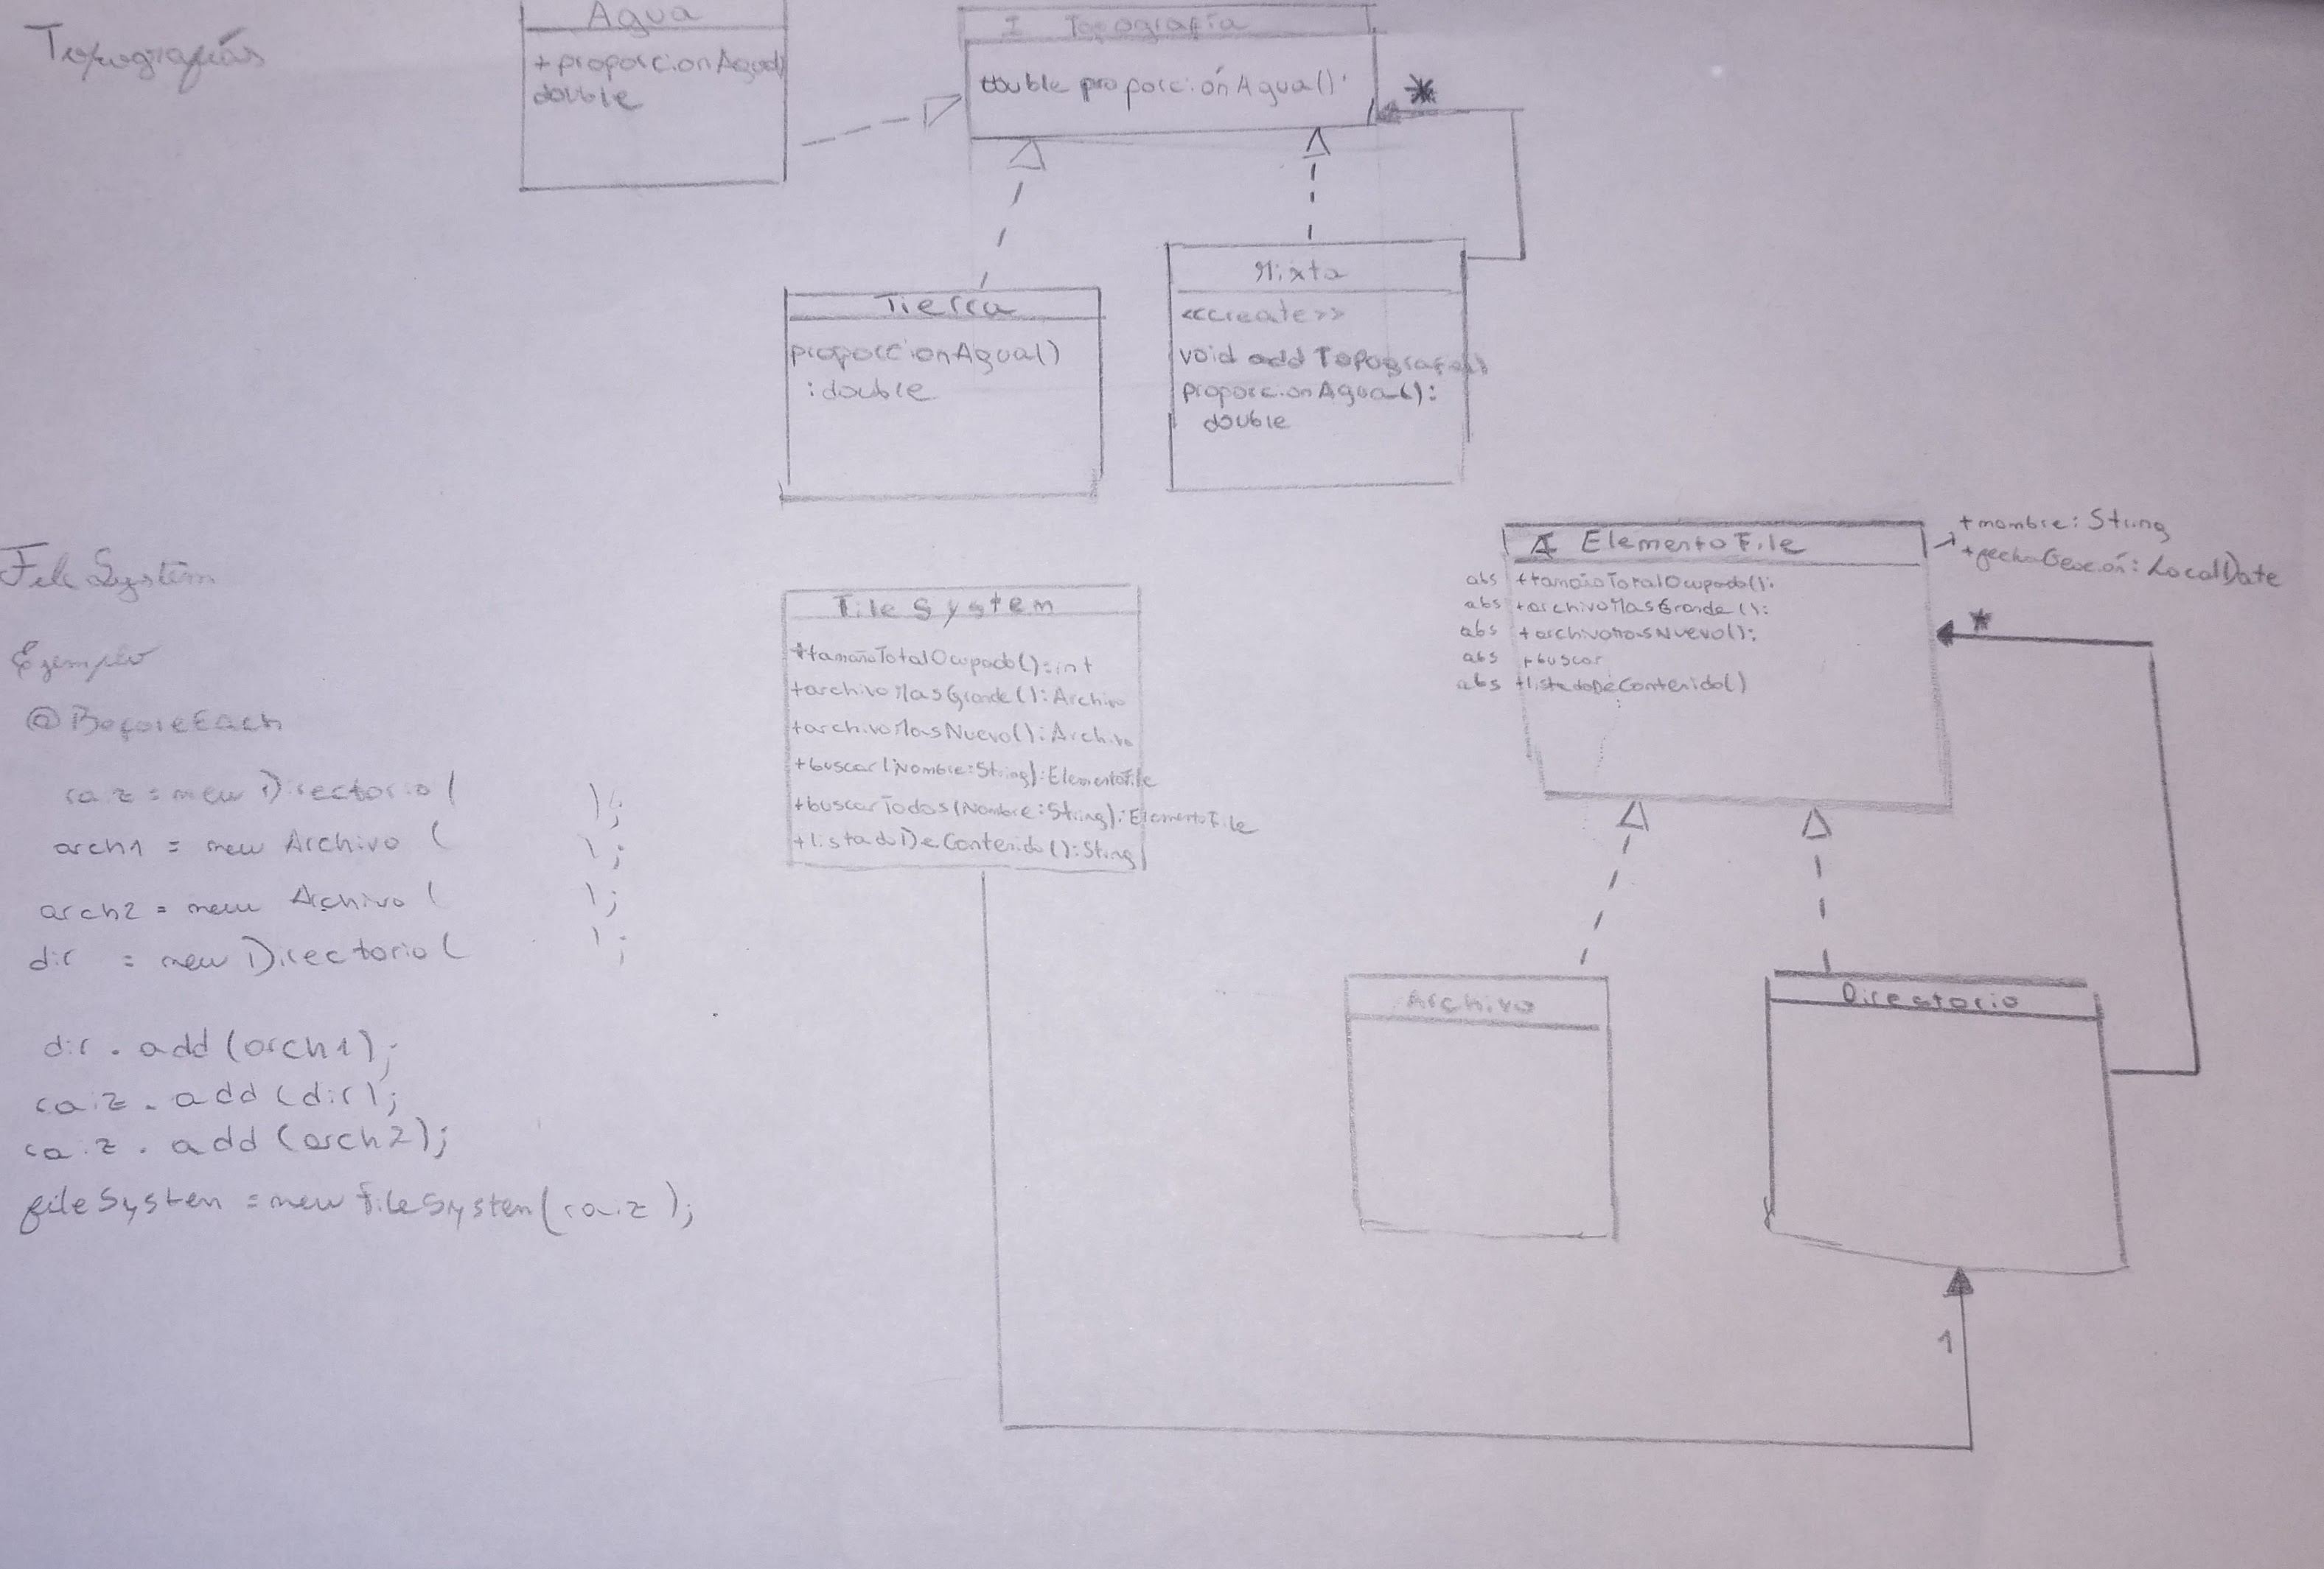 Topografías
Agua
+proporcionAgua()
double
I Topografía
double proporciónAgua()
*
Tierra
proporcionAgua()
:double
Mixta
<<create>>
void add Topografia()
proporcionAgua():
double
File System
Ejemplo
@BeforeEach
raiz = new Directorio( );
arch1 = new Archivo ( );
arch2 = new Archivo ( );
dir = new Directorio( );
dir . add (arch1);
raiz . add (dir);
raiz . add (arch2);
fileSystem = new fileSystem(raiz);
File System
+tamañoTotalOcupado():int
+archivoMasGrande():Archivo
+archivoMasNuevo():Archivo
+buscar(Nombre:String):ElementoFile
+buscarTodos(Nombre:String):ElementoFile
+listadoDeContenido():Sting
ElementoFile
+nombre: String
: LocalDate
abs +tamañoTotalOcupado():
abs +archivoMasGrande():
abs +archivoMasNuevo():
abs +buscar
abs +listadoDeContenido()
*
Archivo
Directorio
1